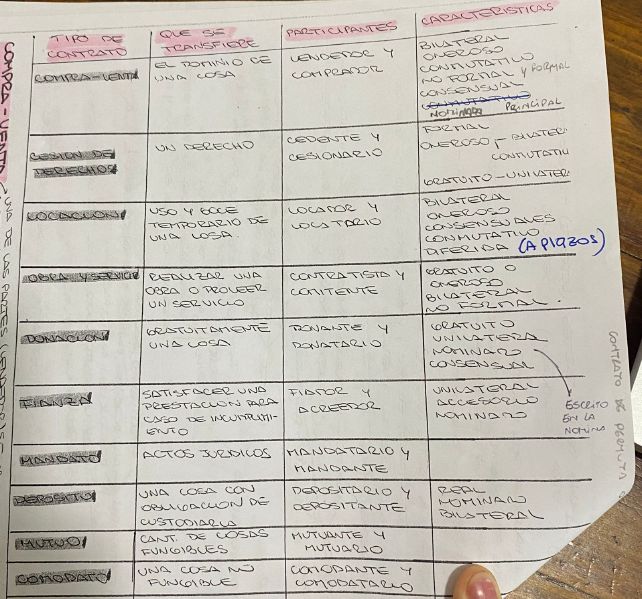 TIPO DE CONTRATO
QUE SE TRANSFIERE
PARTICIPANTES
CARACTERISTICAS
COMPRA-VENTA
EL DOMINIO DE
UNA COSA
VENDEDOR Y
COMPRADOR
BILATERAL
ONEROSO
CONMUTATIVO
NO FORMAL Y FORMAL
CONSENSUAL
CONMUTATIVO
NOMINADO PRINCIPAL
CESION DE
DERECHOS
UN DERECHO
CEDENTE Y
CESIONARIO
FORMAL
ONEROSO - BILATER
CONMUTATIV
GRATUITO - UNILATER
LOCACION
USO Y GOCE
TEMPORARIO DE
UNA COSA
LOCADOR Y
LOCATARIO
BILATERAL
ONEROSO
CONSENSUALES
CONMUTATIVO
DIFERIDA (A PLAZOS)
OBRA Y SERVICIO
REALIZAR UNA
OBRA O PROVEER
UN SERVICIO
CONTRATISTA Y
COMITENTE
GRATUITO O
ONEROSO
BILATERAL
NO FORMAL.
DONACION
GRATUITAMENTE
UNA COSA
DONANTE Y
DONATARIO
GRATUITO
UNILATERAL
NOMINADO
CONSENSUAL
ESCRITO
EN LA
NOMINA
FIANZA
SATISFACER UNA
PRESTACION PARA
CASO DE INCUMPLIMI-
ENTO
FIADOR Y
ACREEDOR
UNILATERAL
ACCESORIO
NOMINADO
MANDATO
ACTOS JURIDICOS
MANDATARIO Y
MANDANTE
DEPOSITO
UNA COSA CON
OBLIGACION DE
CUSTODIARLA
DEPOSITARIO Y
DEPOSITANTE
REAL
NOMINADO
BILATERAL
MUTUO
CANT. DE COSAS
FUNGIBLES
MUTUANTE Y
MUTUARIO
COMODATO
UNA COSA NO
FUNGIBLE
COMODANTE Y
COMODATARIO
COMPRA-VENTA
UNA DE LAS PARTES (VENDEDOR)
CONTRATO DE PERMUTA